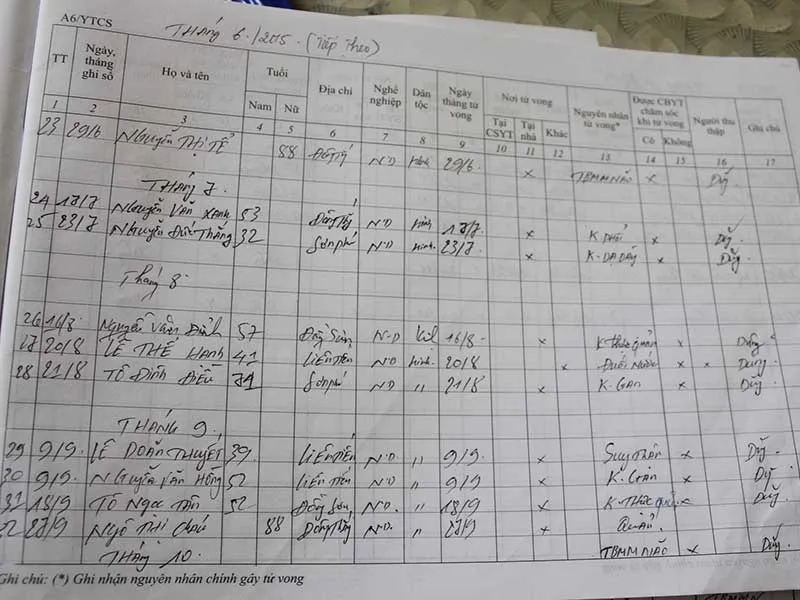 A6/YTCS
THÁNG 6./2015. (Tiếp theo)
TT Ngày, tháng ghi sổ Họ và tên Tuổi Nam Nữ Địa chỉ Nghề nghiệp Dân tộc Ngày tháng tử vong Nơi tử vong Tại CSYT Tại nhà Khác Nguyên nhân tử vong* Được CBYT chăm sóc khi tử vong Có Không Người thu thập Ghi chú
1 2 3 4 5 6 7 8 9 10 11 12 13 14 15 16 17
23 29/6 NGUYỄN THỊ TẺ 88 N.D Kinh 29/6 x TBMM NÃO x
THÁNG 7.
24 17/7 NGUYỄN VĂN XANH 53 N.D Kinh 17/7 x K PHỔI x
25 23/7 NGUYỄN ĐỨC THẮNG 32 Sơn phú N.D Kinh. 23/7 x K-DẠ DÀY x
Tháng 8
26 16/8 Nguyễn Văn 57 N-D 16/8- x K thực quản x
27 20/8 LÊ THẾ HẠNH 41 LIÊN TIẾN N.D Kinh. 20/8 x Đuối Nước x x
28 21/8 TÔ ĐÌNH ĐIỀU 74 Sơn phú N.D " 21/8 x K-GAN x
THÁNG 9.
29 9/9 LÊ DOÃN THUYẾT 39. LIÊN TIẾN N.D " 9/9 x Suy THẬN x
30 9/9 NGUYỄN VĂN HỒNG 52 LIÊN TIẾN N.D " 9/9 x K.GAN x
31 18/9 TÔ NGỌC TẤN 52 ĐỒNG SƠN, N.D. " 18/9 x K-THỰC QUẢN x
32 27/9 NGÔ THỊ 88 N.D. " 27/9 x QUẢN.
THÁNG 10. TBMM NÃO x
Ghi chú: (*) Ghi nhận nguyên nhân chính gây tử vong